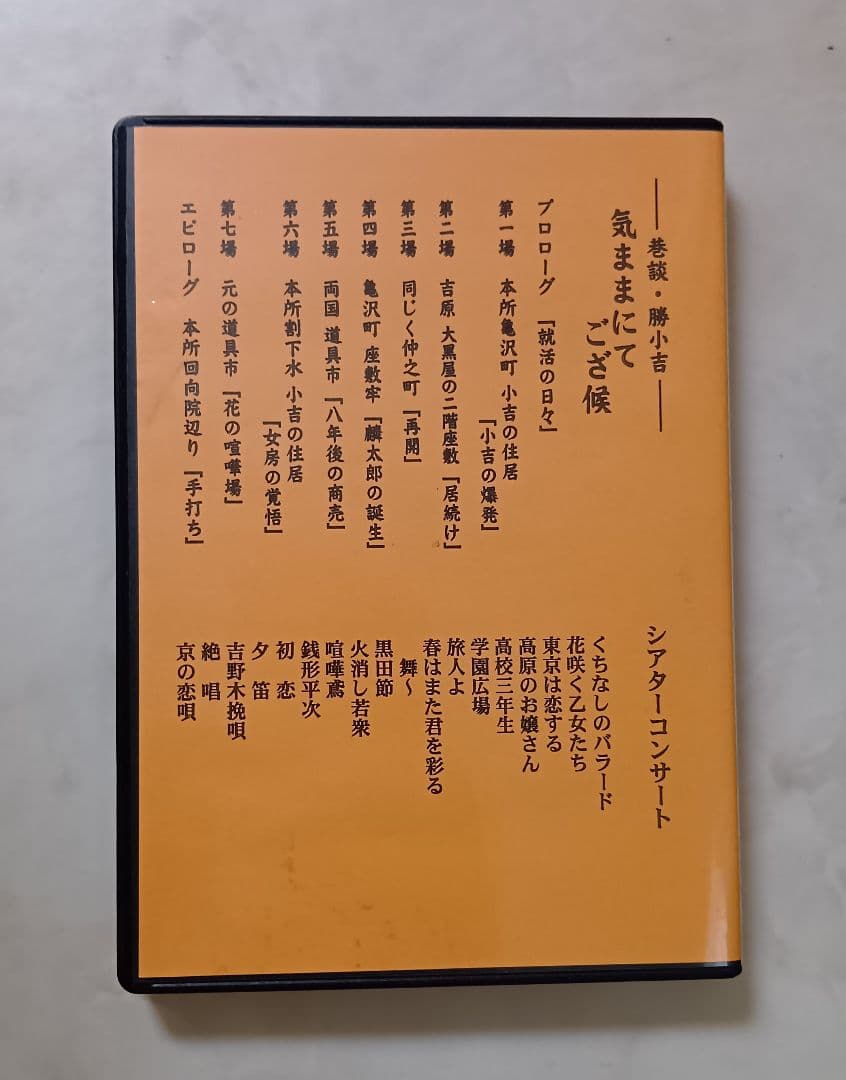 ── 巷談・勝小吉 ──
気ままにて
ござ候
プロローグ 「就活の日々」
第一場 本所亀沢町 小吉の住居
「小吉の爆発」
第二場 吉原 大黒屋の二階座敷 「居続け」
第三場 同じく仲之町 「再開」
第四場 亀沢町 座敷牢 「麟太郎の誕生」
第五場 両国 道具市 「八年後の商売」
第六場 本所割下水 小吉の住居
「女房の覚悟」
第七場 元の道具市 「花の喧嘩場」
エピローグ 本所回向院辺り 「手打ち」
シアターコンサート
くちなしのバラード
花咲く乙女たち
東京は恋する
高原のお嬢さん
高校三年生
学園広場
旅人よ
春はまた君を彩る
舞〜
黒田節
火消し若衆
喧嘩鳶
銭形平次
初恋
夕笛
吉野木挽唄
絶唱
京の恋唄